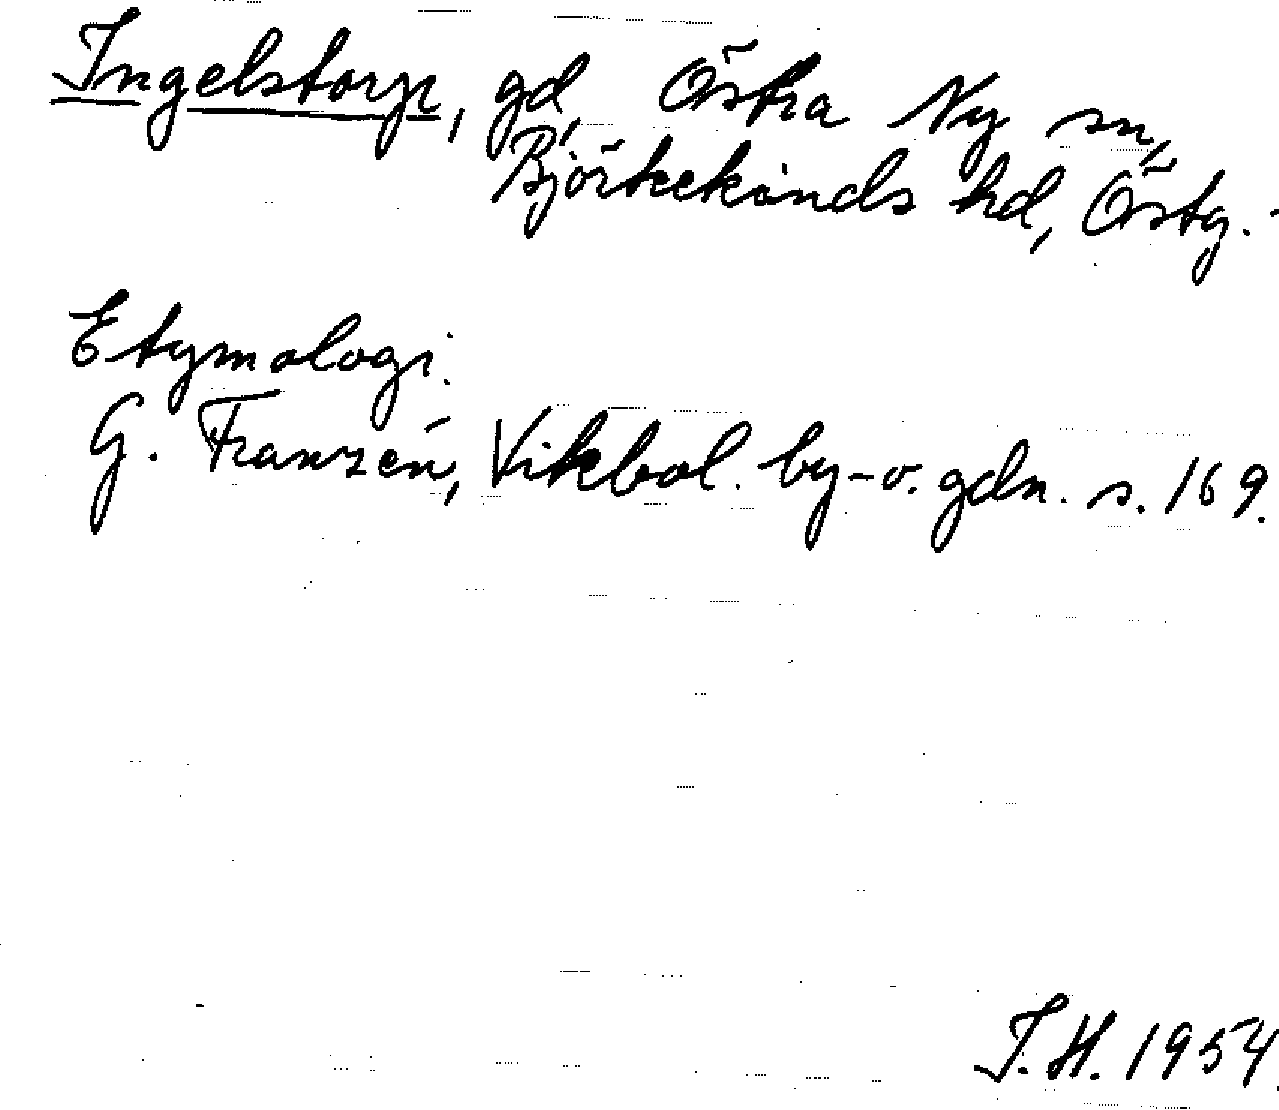 Ingelstorp, gd, Östra Ny sn,
Björkekinds hd, Östg.
Etymologi.
G. Franzén, Vikbol. by- o. gdn. s. 169.
I.H. 1954.